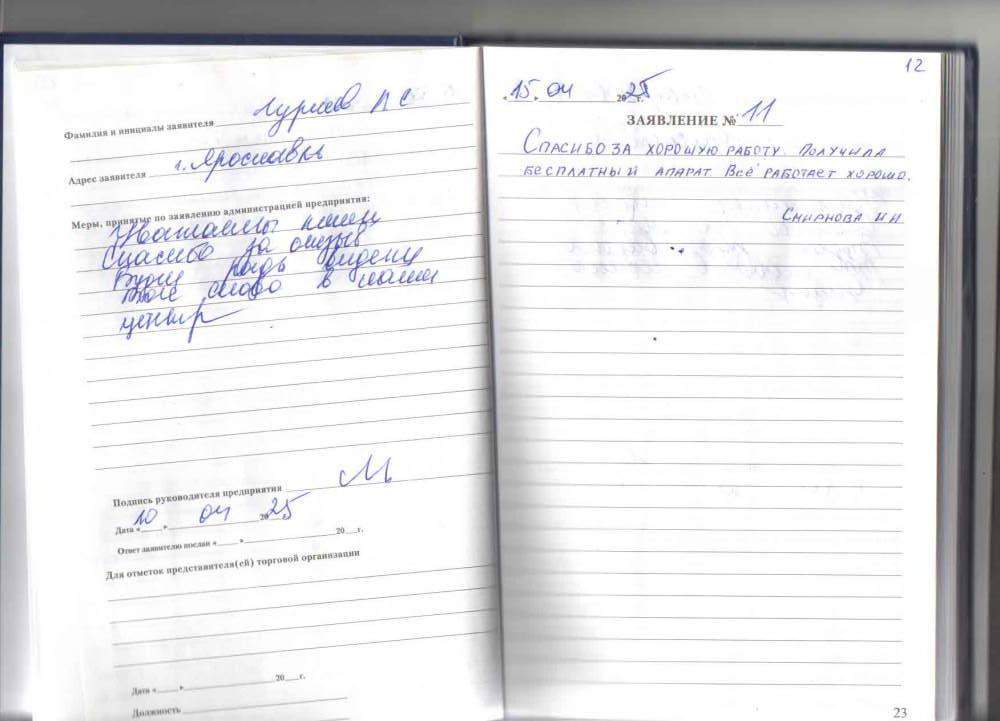 Фамилия и инициалы заявителя Гуриев П С
Адрес заявителя г. Ярославль
Меры, принятые по заявлению администрацией предприятия:
Спасибо за отзыв
Будем рады видеть
Вас снова в нашем
центре
Подпись руководителя предприятия
Дата «10» 04 2025
Ответ заявителю послан «___» 20__г.
Для отметок представителя(ей) торговой организации
Дата «___» 20__г.
Должность
12
«15» 04 2025 г.
ЗАЯВЛЕНИЕ № 11
СПАСИБО ЗА ХОРОШУЮ РАБОТУ. ПОЛУЧИЛА
БЕСПЛАТНЫЙ АПАРАТ ВСЁ РАБОТАЕТ ХОРОШО.
СМИРНОВА Н.Н.
23